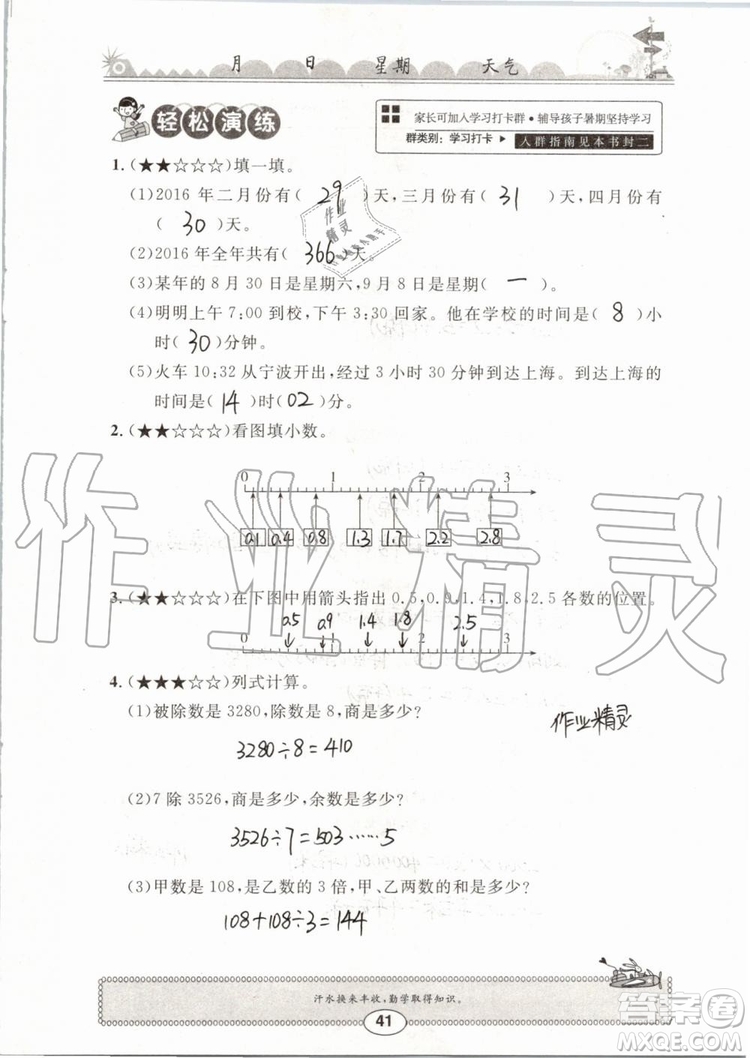 月 日 星期 天气
轻松演练
家长可加入学习打卡群·辅导孩子暑期坚持学习
群类别:学习打卡▶ 入群指南见本书封二
1.(★★☆☆☆)填一填。
(1)2016年二月份有( 29 )天,三月份有( 31 )天,四月份有
( 30 )天。
(2)2016年全年共有( 366 )天
(3)某年的8月30日是星期六,9月8日是星期( 一 )。
(4)明明上午7:00到校,下午3:30回家。他在学校的时间是( 8 )小
时( 30 )分钟。
(5)火车10:32从宁波开出,经过3小时30分钟到达上海。到达上海的
时间是( 14 )时( 02 )分。
2.(★★☆☆☆)看图填小数。
0 1 2 3
0.1 0.4 0.8 1.3 1.7 2.2 2.8
3.(★★☆☆☆)在下图中用箭头指出0.5,0.9,1.4,1.8,2.5各数的位置。
0.5 0.9 1.4 1.8 2.5
0 1 2 3
4.(★★★☆☆)列式计算。
(1)被除数是3280,除数是8,商是多少?
作业精灵
3280÷8=410
(2)7除3526,商是多少,余数是多少?
3526÷7=503……5
(3)甲数是108,是乙数的3倍,甲、乙两数的和是多少?
108+108÷3=144
汗水换来丰收,勤学取得知识。
41
作业精灵
作业精灵
答案圈
MXQE.COM